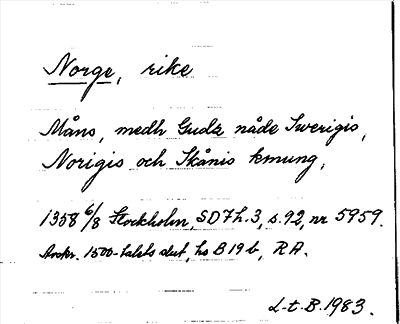 Norge, rike
Måns, medh Gudz nåde Swerigis,
Norigis och Skånis kmung,
1358 6/8 Stockholm, SD 7 h. 3, s. 92, nr 5959.
Avskr. 1500-talets slut, hs B 19 b, RA.
L-t. B. 1983.